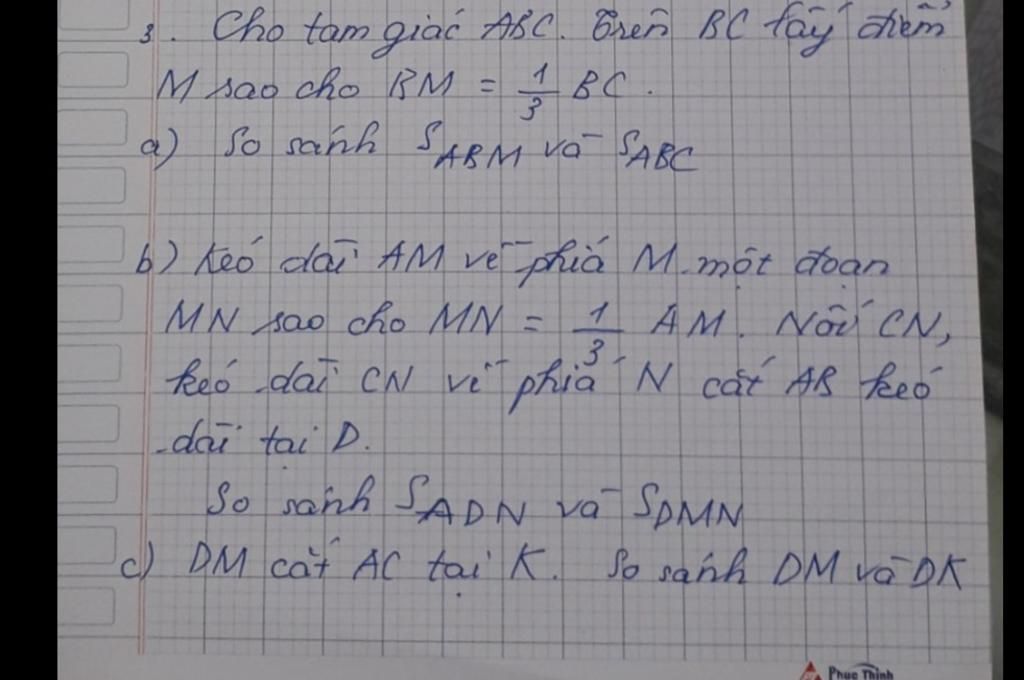 3. Cho tam giác ABC. Trên BC lấy điểm
M sao cho BM = 1/3 BC.
a) So sánh S_ABM và S_ABC
b) Kéo dài AM về phía M một đoạn
MN sao cho MN = 1/3 AM. Nối CN,
kéo dài CN về phía N cắt AB kéo
dài tại D.
So sánh S_ADN và S_DMN
c) DM cắt AC tại K. So sánh DM và DK
Phuc Thinh